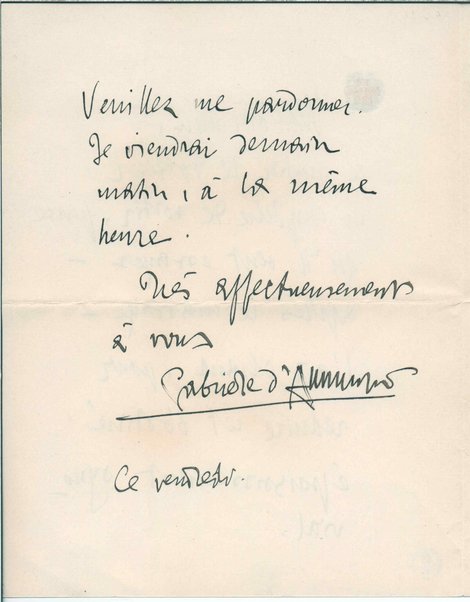 Veuillez me pardonner.
Je viendrai demain
matin, à la même
heure.
Très affectueusement
à vous
Gabriele d'Annunzio
Ce vendredi.